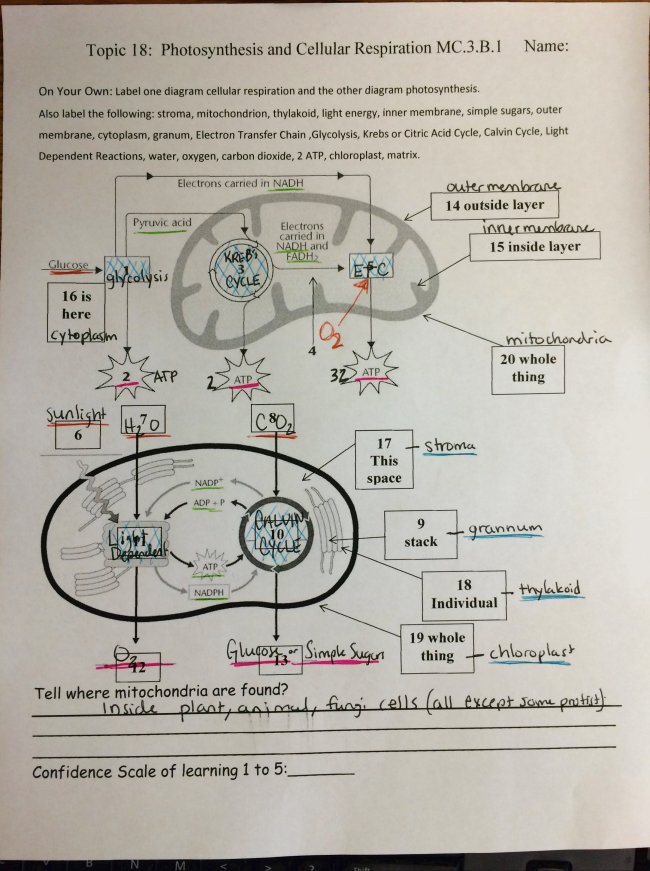 Topic 18: Photosynthesis and Cellular Respiration MC.3.B.1 Name:
On Your Own: Label one diagram cellular respiration and the other diagram photosynthesis.
Also label the following: stroma, mitochondrion, thylakoid, light energy, inner membrane, simple sugars, outer
membrane, cytoplasm, granum, Electron Transfer Chain ,Glycolysis, Krebs or Citric Acid Cycle, Calvin Cycle, Light
Dependent Reactions, water, oxygen, carbon dioxide, 2 ATP, chloroplast, matrix.
Electrons carried in NADH
outer membrane
14 outside layer
Pyruvic acid
Electrons
carried in
NADH and
FADH₂
inner membrane
15 inside layer
Glucose
1
glycolysis
KREB's
3
CYCLE
5
ETC
16 is
here
cytoplasm
O₂
4
mitochondria
20 whole
thing
2 ATP
2 ATP
32 ATP
Sunlight
6
H₂O
7
CO₂
8
17
This
space
stroma
NADP⁺
ADP + P
Light
Dependent
CALVIN
10
CYCLE
9
stack
grannum
ATP
NADPH
18
Individual
thylakoid
19 whole
thing
chloroplast
O₂
12
Glucose or Simple Sugars
13
Tell where mitochondria are found?
Inside plant, animal, fungi cells (all except some protist)
Confidence Scale of learning 1 to 5:
B N M < > ?